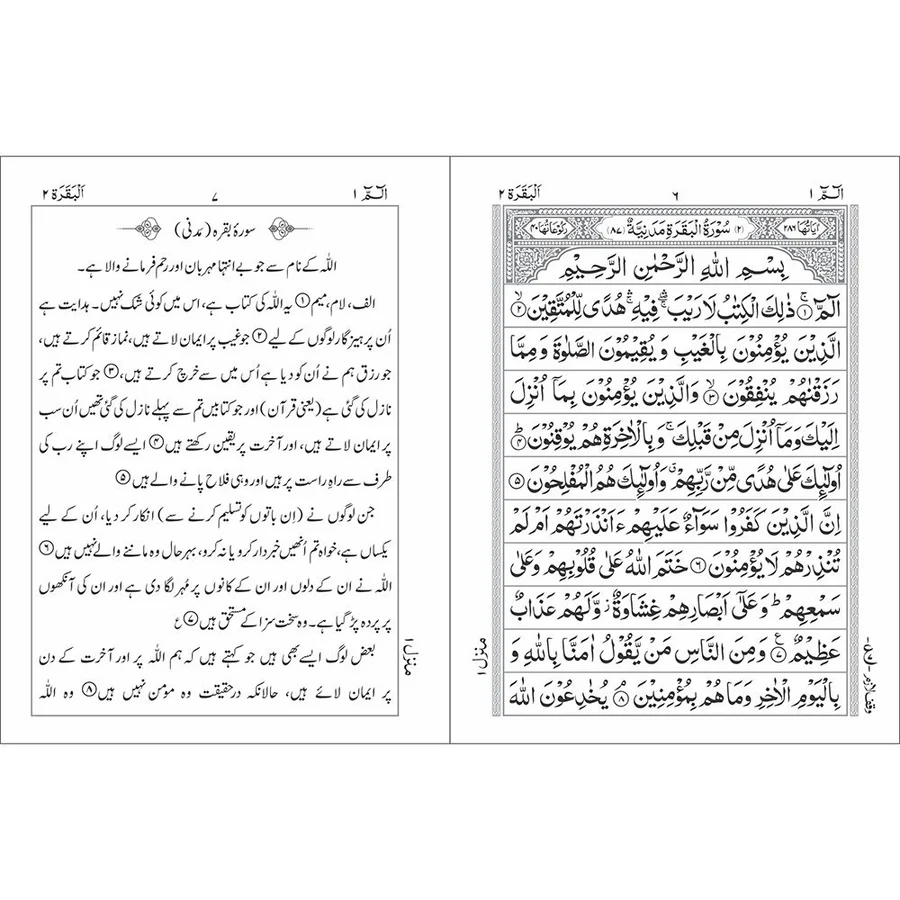 الٓمّٓ ۱
۶
اَلْبَقَرَة ۲
اٰیَاتُهَا ۲۸۶
(۲) سُوْرَةُ الْبَقَرَةِ مَدَنِیَّةٌ (۸۷)
رُكُوْعَاتُهَا ۴۰
بِسْمِ اللّٰهِ الرَّحْمٰنِ الرَّحِیْمِ
الٓمّٓ ۚ۝۱ ذٰلِكَ الْكِتٰبُ لَا رَیْبَ ۛۖۚ فِیْهِ ۛۚ هُدًی لِّلْمُتَّقِیْنَ ۙ۝۲
الَّذِیْنَ یُؤْمِنُوْنَ بِالْغَیْبِ وَ یُقِیْمُوْنَ الصَّلٰوةَ وَ مِمَّا
رَزَقْنٰهُمْ یُنْفِقُوْنَ ۙ۝۳ وَالَّذِیْنَ یُؤْمِنُوْنَ بِمَاۤ اُنْزِلَ
اِلَیْكَ وَ مَاۤ اُنْزِلَ مِنْ قَبْلِكَ ۚ وَ بِالْاٰخِرَةِ هُمْ یُوْقِنُوْنَ ؕ۝۴
اُولٰٓئِكَ عَلٰی هُدًی مِّنْ رَّبِّهِمْ ۗ وَ اُولٰٓئِكَ هُمُ الْمُفْلِحُوْنَ ۝۵
اِنَّ الَّذِیْنَ كَفَرُوْا سَوَآءٌ عَلَیْهِمْ ءَاَنْذَرْتَهُمْ اَمْ لَمْ
تُنْذِرْهُمْ لَا یُؤْمِنُوْنَ ۝۶ خَتَمَ اللّٰهُ عَلٰی قُلُوْبِهِمْ وَعَلٰی
سَمْعِهِمْ ؕ وَ عَلٰۤی اَبْصَارِهِمْ غِشَاوَةٌ ؗ وَّلَهُمْ عَذَابٌ
عَظِیْمٌ ۠۝۷ وَ مِنَ النَّاسِ مَنْ یَّقُوْلُ اٰمَنَّا بِاللّٰهِ وَ
بِالْیَوْمِ الْاٰخِرِ وَمَا هُمْ بِمُؤْمِنِیْنَ ۘ۝۸ یُخٰدِعُوْنَ اللّٰهَ
منزل ۱
الٓمّٓ ۱
۷
اَلْبَقَرَة ۲
سورۂ بقرہ (مَدَنی)
اللہ کے نام سے جو بے انتہا مہربان اور رحم فرمانے والا ہے۔
الف، لام، میم ۝۱ یہ اللہ کی کتاب ہے، اس میں کوئی شک نہیں۔ ہدایت ہے
اُن پرہیز گار لوگوں کے لیے ۝۲ جو غیب پر ایمان لاتے ہیں، نماز قائم کرتے ہیں،
جو رزق ہم نے اُن کو دیا ہے اُس میں سے خرچ کرتے ہیں، ۝۳ جو کتاب تم پر
نازل کی گئی ہے (یعنی قرآن) اور جو کتابیں تم سے پہلے نازل کی گئی تھیں اُن سب
پر ایمان لاتے ہیں، اور آخرت پر یقین رکھتے ہیں ۝۴ ایسے لوگ اپنے رب کی
طرف سے راہِ راست پر ہیں اور وہی فلاح پانے والے ہیں ۝۵
جن لوگوں نے (اِن باتوں کو تسلیم کرنے سے) انکار کر دیا، اُن کے لیے
یکساں ہے، خواہ تم اُنھیں خبردار کرو یا نہ کرو، بہرحال وہ ماننے والے نہیں ہیں ۝۶
اللہ نے ان کے دلوں اور ان کے کانوں پر مُہر لگا دی ہے اور ان کی آنکھوں
پر پردہ پڑ گیا ہے۔ وہ سخت سزا کے مستحق ہیں ۝۷ ع
بعض لوگ ایسے بھی ہیں جو کہتے ہیں کہ ہم اللہ پر اور آخرت کے دن
پر ایمان لائے ہیں، حالانکہ درحقیقت وہ مؤمن نہیں ہیں ۝۸ وہ اللہ
منزل ۱